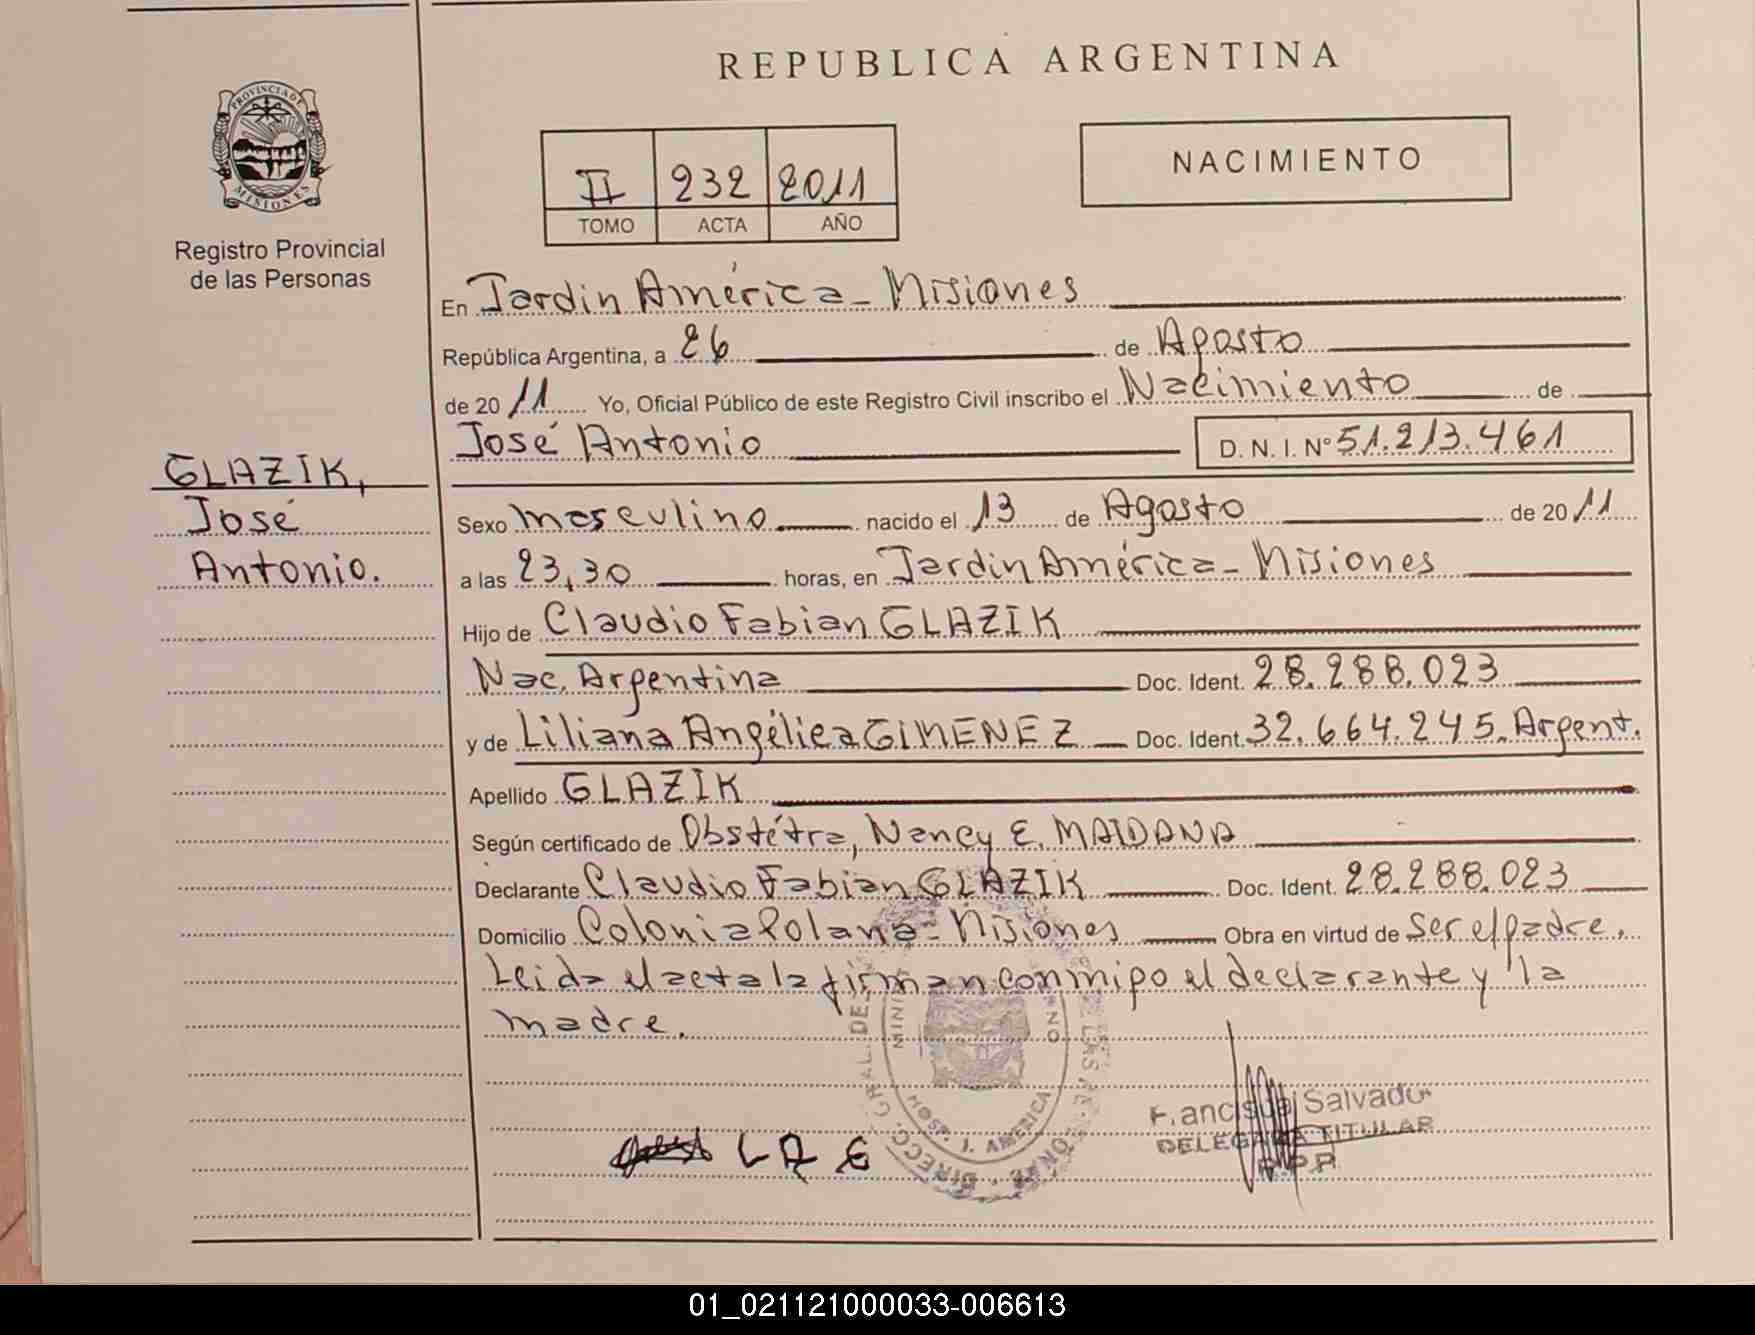 REPUBLICA ARGENTINA
PROVINCIA DE
MISIONES
Registro Provincial
de las Personas
II 232 2011
TOMO ACTA AÑO
NACIMIENTO
En Jardin América - Misiones
República Argentina, a 26 de Agosto
de 2011 Yo, Oficial Público de este Registro Civil inscribo el Nacimiento de
José Antonio D. N. I. Nº 51.213.461
GLAZIK,
José
Antonio.
Sexo masculino nacido el 13 de Agosto de 2011
a las 23,30 horas, en Jardin América - Misiones
Hijo de Claudio Fabian GLAZIK
Nac. Argentina Doc. Ident. 28.288.023
y de Liliana Angélica GIMENEZ Doc. Ident. 32.664.245. Argent.
Apellido GLAZIK
Según certificado de Obstétra, Nancy E. MAIDANA
Declarante Claudio Fabian GLAZIK Doc. Ident. 28.288.023
Domicilio Colonia Polana - Misiones Obra en virtud de ser el padre.
Leida el acta la firman conmigo el declarante y la
madre.
DIRECC. GRAL. DE LAS
HOSP. J. AMERICA
L A G
Salvador
DELEGADA TITULAR
R.P.P.
01_021121000033-006613